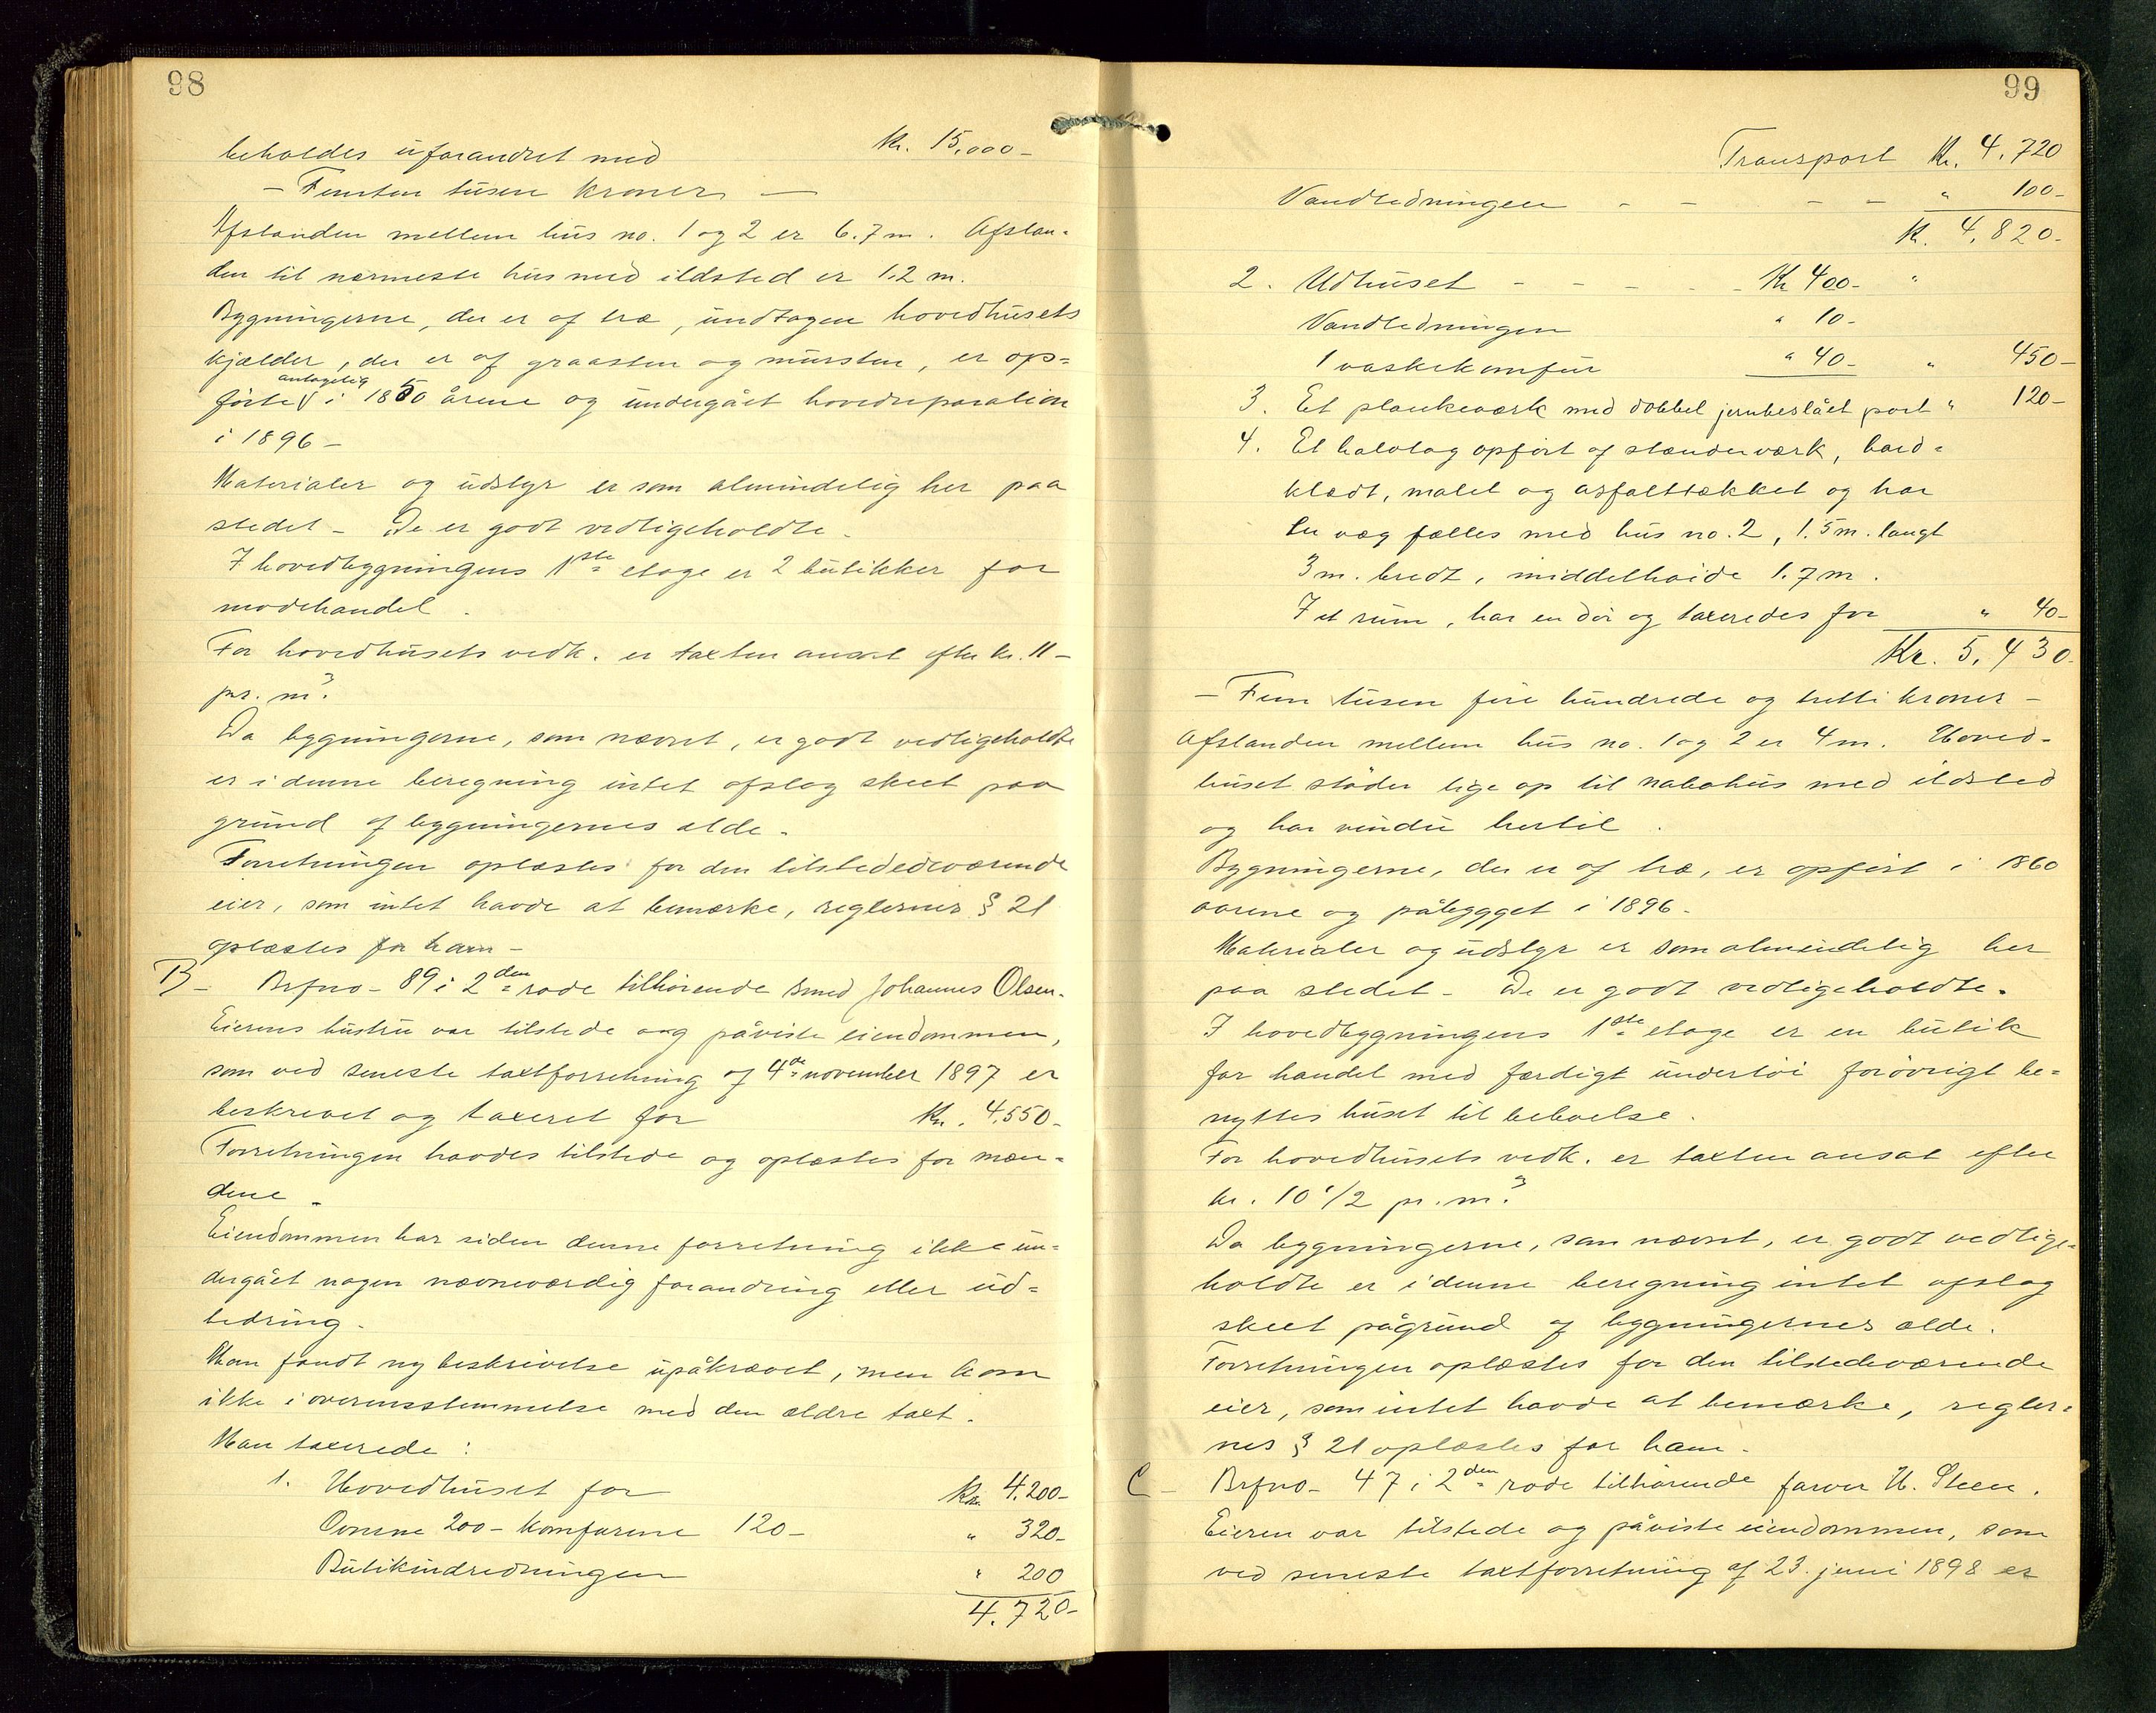 98
beholdes uforandret med Kr. 15,000-
- Femten tusen kroner, -
Afstanden mellem hus no. 1 og 2 er 6.7 m. Afstan-
den til nærmeste hus med ildsted er 1.2 m.
Bygningerne, der er af træ, undtagen hovedhusets
kjælder, der er af graasten og mursten, er op-
førte antagelig i 1850 årene og undergået hovedreparation
i 1896-
Materialer og udstyr er som almindelig her paa
stedet - De er godt vedligeholdte.
I hovedbygningens 1ste etage er 2 butikker for
modehandel.
For hovedhusets vedk. er taxten ansat efter kr. 11-
pr. m3.
Da bygningerne, som nævnt, er godt vedligeholdte
er i denne beregning intet afslag skeet paa
grund af bygningernes ælde.
Forretningen oplæstes for den tilstededeværende
eier, som intet havde at bemærke, reglernes § 21
oplæstes for ham -
B - Brfno- 89 i 2den rode tilhørende smed Johannes Olsen.
Eierens hustru var tilstede og påviste eiendommen,
som ved seneste taxtforretning af 4de november 1897 er
beskrevet og taxeret for Kr. 4,550-
Forretningen havdes tilstede og oplæstes for mæn-
dene -
Eiendommen har siden denne forretning ikke un-
dergået nogen nævneværdig forandring eller ud-
bedring.
Man fandt ny beskrivelse upåkrævet, men kom
ikke i overensstemmelse med den ældre taxt.
Man taxerede:
1. Hovedhuset for Kr. 4.200-
Ovnene 200- Komfurene 120- " 320-
Butikindredningen " 200
4.720-
99
Transport Kr. 4.720
Vandledningen - - - - " 100-
Kr. 4.820-
2. Udhuset - - - - - Kr 400- "
Vandledningen " 10-
1 vaskekomfur " 40- " 450-
3. Et plankeværk med dobbel jernbeslået port " 120-
4. Et halvtag opført af stænderværk, bord-
klædt, malet og asfalttækket og har
en væg fælles med hus no. 2, 1.5 m. langt
3 m. bredt, middelhøide 1.7 m.
I et rum, har en dør og taxeredes for " 40-
Kr. 5.430-
- Fem tusen fire hundrede og tretti kroner -
Afstanden mellem hus no. 1 og 2 er 4 m. Hoved-
huset støder lige op til nabohus med ildsted
og har vindu hertil.
Bygningerne, der er af træ, er opført i 1860
aarene og påbygget i 1896-
Materialer og udstyr er som almindelig her
paa stedet - De er godt vedligeholdte.
I hovedbygningens 1ste etage er en butik
for handel med færdigt undertøi forøvrigt be-
nyttes huset til beboelse.
For hovedhusets vedk. er taxten ansat efter
kr. 10 1/2 pr. m3.
Da bygningerne, som nævnt, er godt vedlige-
holdte er i denne beregning intet afslag
skeet pågrund af bygningernes ælde.
Forretningen oplæstes for den tilstedeværende
eier, som intet havde at bemærke, regler-
nes § 21 oplæstes for ham.
C - Brfno- 47 i 2den rode tilhørende farver H. Steen.
Eieren var tilstede og påviste eiendommen, som
ved seneste taxtforretning af 23. juni 1898 er